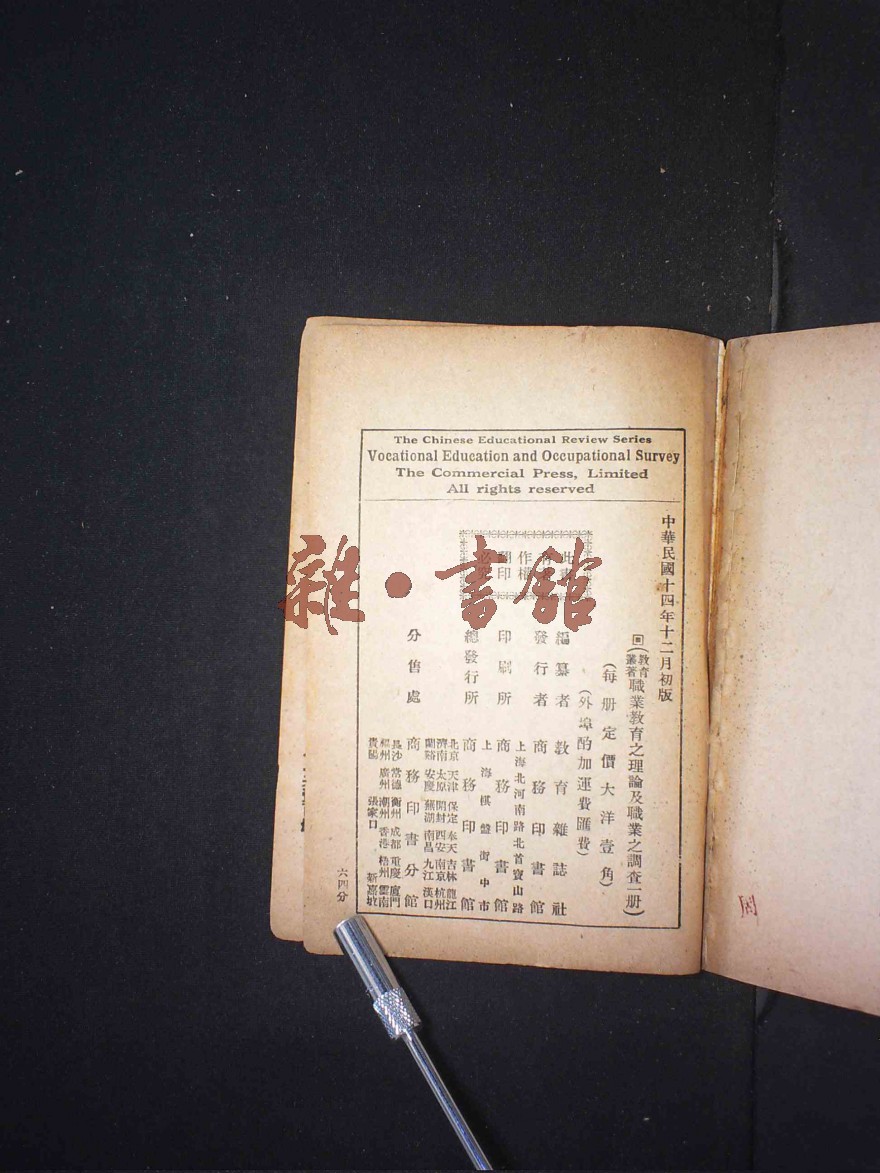 The Chinese Educational Review Series
Vocational Education and Occupational Survey
The Commercial Press, Limited
All rights reserved
中華民國十四年十二月初版
回(教育叢著職業教育之理論及職業之調查一册)
(每册定價大洋壹角)
(外埠酌加運費匯費)
此書
作權
翻印
必究
編纂者 教育雜誌社
發行者 商務印書館
上海北河南路北首寶山路
印刷所 商務印書館
上海棋盤街中市
總發行所 商務印書館
分售處 商務印書分館
北京 天津 保定 奉天 吉林 龍江
濟南 太原 開封 西安 南京 杭州
蘭谿 安慶 蕪湖 南昌 九江 漢口
長沙 常德 衡州 成都 重慶 廈門
福州 廣州 潮州 香港 梧州 雲南
貴陽 張家口 新嘉坡
六四分
雜·書館